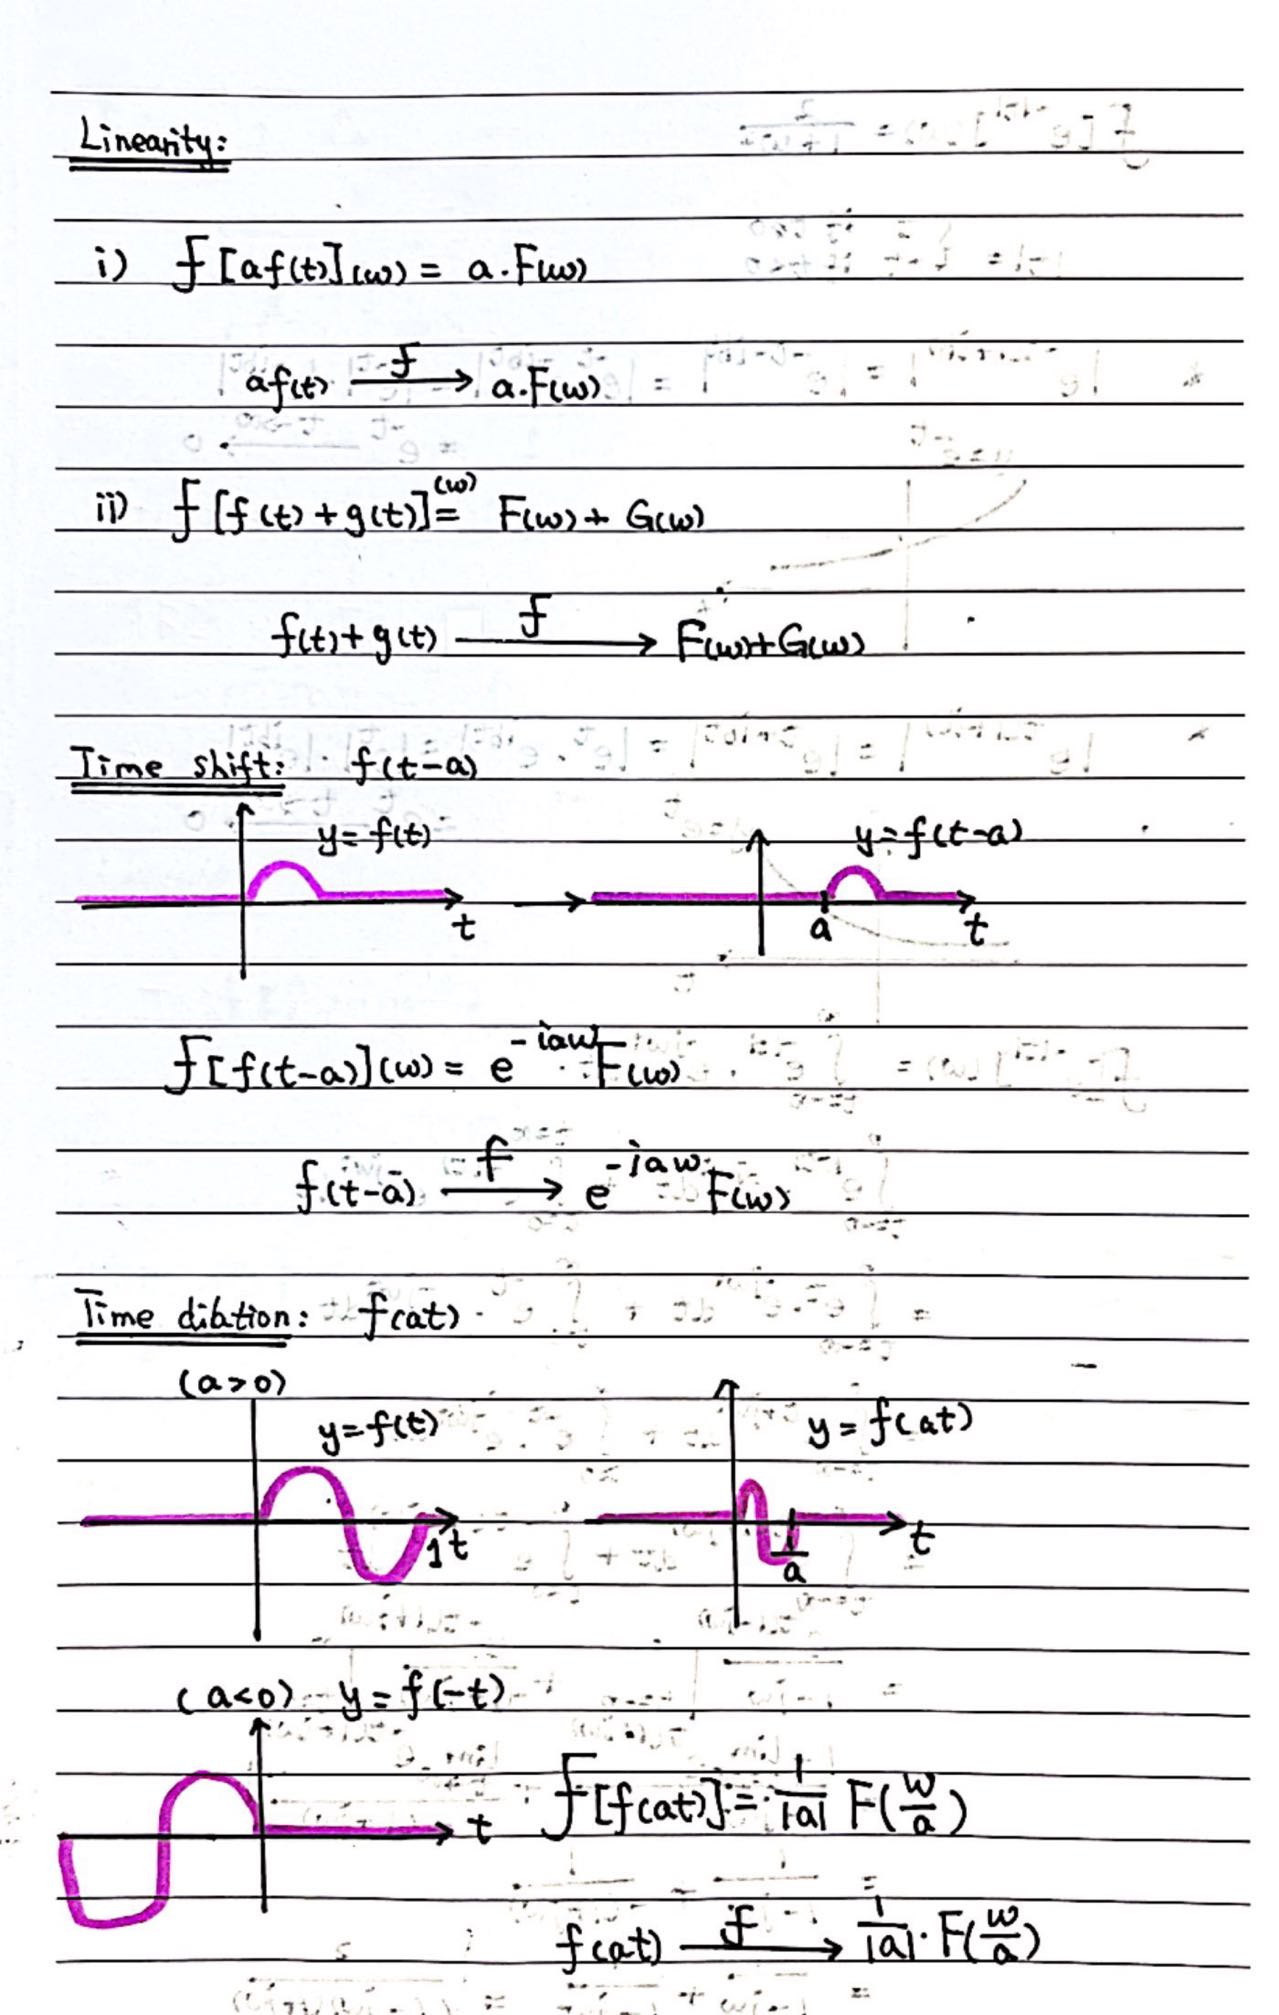 Linearity:
i) F[af(t)](ω) = a·F(ω)
af(t) —F→ a·F(ω)
ii) F[f(t)+g(t)](ω) = F(ω) + G(ω)
f(t)+g(t) —F→ F(ω)+G(ω)
Time shift: f(t-a)
y=f(t) y=f(t-a)
t a t
F[f(t-a)](ω) = e^{-iaω} · F(ω)
f(t-a) —F→ e^{-iaω} F(ω)
Time dilation: f(at)
(a>0)
y=f(t) y=f(at)
1 t 1/a t
(a<0) y=f(-t)
t F[f(at)] = 1/|a| F(ω/a)
f(at) —F→ 1/|a| · F(ω/a)